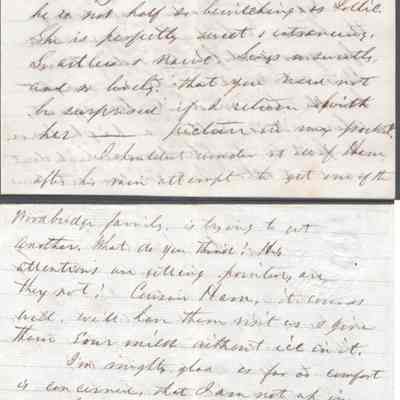 he is not half so bewitching as Lollie.
She is perfectly sweet & entrancing.
So artless & naive. Sings so sweetly
and so lovely. that you need not
be surprised if I return with
her — picture in my pocket.
I shouldnt wonder at all if Mam
after his vain attempt to get one of the
Woodbridge family, is trying to get
another. What do you think? His
attentions are getting pointed, are
they not? Cousin Mann, it sounds
well. will have them visit us & give
them Sour milk without ice in it.
I'm mighty glad as far as comfort
is concerned, that I am not up in